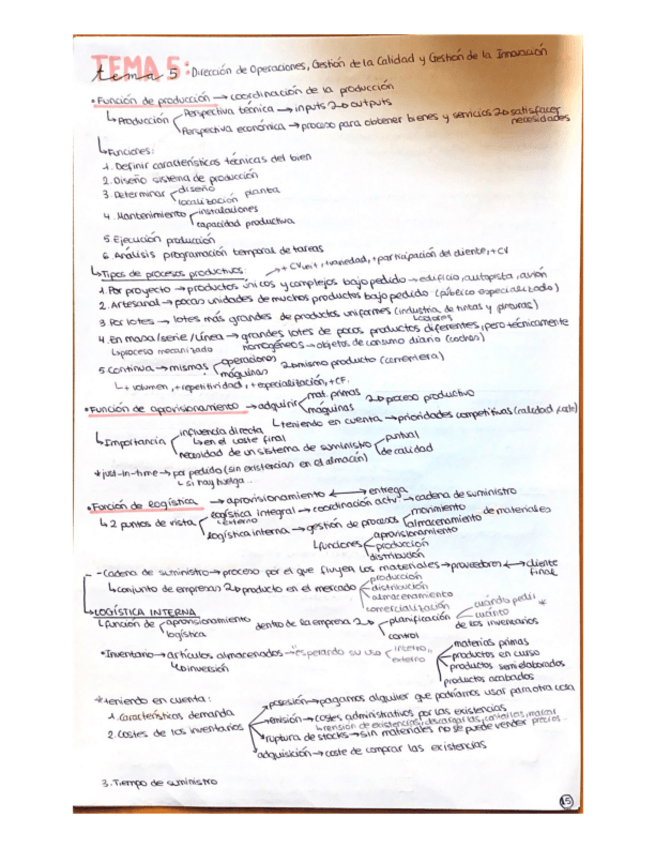 TEMA 5
tema 5: Dirección de Operaciones, Gestión de la Calidad y Gestión de la Innovación
• Función de producción → coordinación de la producción
↳ Producción Perspectiva técnica → inputs 2o outputs
Perspectiva económica → proceso para obtener bienes y servicios 2o satisfacer necesidades
↳ Funciones:
1. Definir características técnicas del bien
2. Diseño sistema de producción
3. Determinar diseño planta
localización
4. Mantenimiento instalaciones
capacidad productiva
5. Ejecución producción
6. Análisis programación temporal de tareas
↳ Tipos de procesos productivos: + CVunit, + variedad, + participación del cliente, + CV
1. Por proyecto → productos únicos y complejos bajo pedido → edificio, autopista, avión
2. Artesanal → pocas unidades de muchos productos bajo pedido (público especializado)
3. Por lotes → lotes más grandes de productos uniformes (industria de tintas y pinturas)
4. En masa/serie/línea → grandes lotes de pocos productos diferentes, pero técnicamente
↳ proceso mecanizado homogéneos → objetos de consumo diario (coches)
5. Continua → mismas operaciones 2o mismo producto
máquinas
↳ + volumen, + repetitividad, + especialización, + CF.
• Función de aprovisionamiento → adquirir mat. primas 2o proceso productivo
máquinas
↳ teniendo en cuenta → prioridades competitivas
↳ Importancia influencia directa
↳ en el coste final
necesidad de un sistema de suministro puntual
de calidad
* just-in-time → por pedido (sin existencias en el almacén)
↳ si hay huelga...
• Función de logística → aprovisionamiento ↔ entrega
↳ 2 puntos de vista logística integral → coordinación activ → cadena de suministro
externo
logística interna → gestión de procesos movimiento de materiales
almacenamiento
↳ funciones aprovisionamiento
producción
distribución
- Cadena de suministro → proceso por el que fluyen los materiales → proveedores ↔ cliente final
↳ conjunto de empresas 2o producto en el mercado producción
distribución
almacenamiento
comercialización
↳ LOGÍSTICA INTERNA
↳ función de aprovisionamiento dentro de la empresa 2o planificación cuándo pedir *
logística control cuánto
de los inventarios
• Inventario → artículos almacenados → esperando su uso interno
externo
↳ inversión
materias primas
productos en curso
productos semielaborados
productos acabados
* teniendo en cuenta:
1. Características demanda
2. Costes de los inventarios
posesión → pagamos alquiler que podríamos usar para otra cosa
emisión → costes administrativos por las existencias
descargarlas, contarlas, marcar precios...
ruptura de stocks → sin materiales no se puede vender
adquisición → coste de comprar las existencias
3. Tiempo de suministro
15